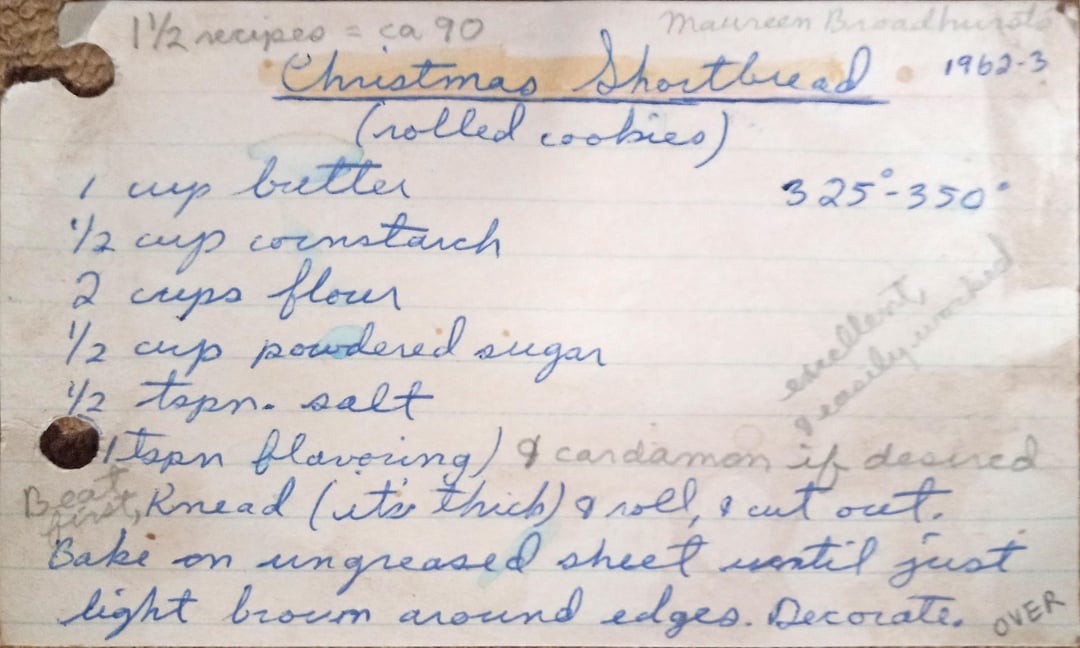 1½ recipes = ca 90
Maureen Broadhurst's
Christmas Shortbread
1962-3
(rolled cookies)
1 cup butter
325°-350°
½ cup cornstarch
2 cups flour
½ cup powdered sugar
½ tspn. salt
excellent,
& easily worked
1 tspn flavoring) & cardamon if desired
Beat first, Knead (it's thick) & roll, & cut out.
Bake on ungreased sheet until just
light brown around edges. Decorate.
OVER